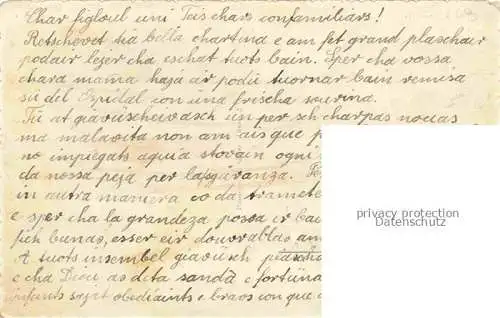 Char figloul uni Tais char confamiliars!
Retschevet tia bella chartina e am fet grand plaschair
podair lezer cha eschat tuots bain. Sper cha vossa
chara mama haja eir podü tuornar bain remissa
sü del Ospidal con üna frischa sourina.
Tü at giavüscheivasch ün per s-ch charpas nouvas
ma malavita non am ais que p
no impiegats aquia stovain ogni
da nossa peja per l'assgüranza.
in autra maniera co da tramete
e sper cha la grandezza possa ir ba
fich bunas, esser eir dourablas am
A tuots insembel giavüsch
e cha Diou as deta sandà e fortüna
infants sajat obediaints e bravs con que
privacy protection
Datenschutz